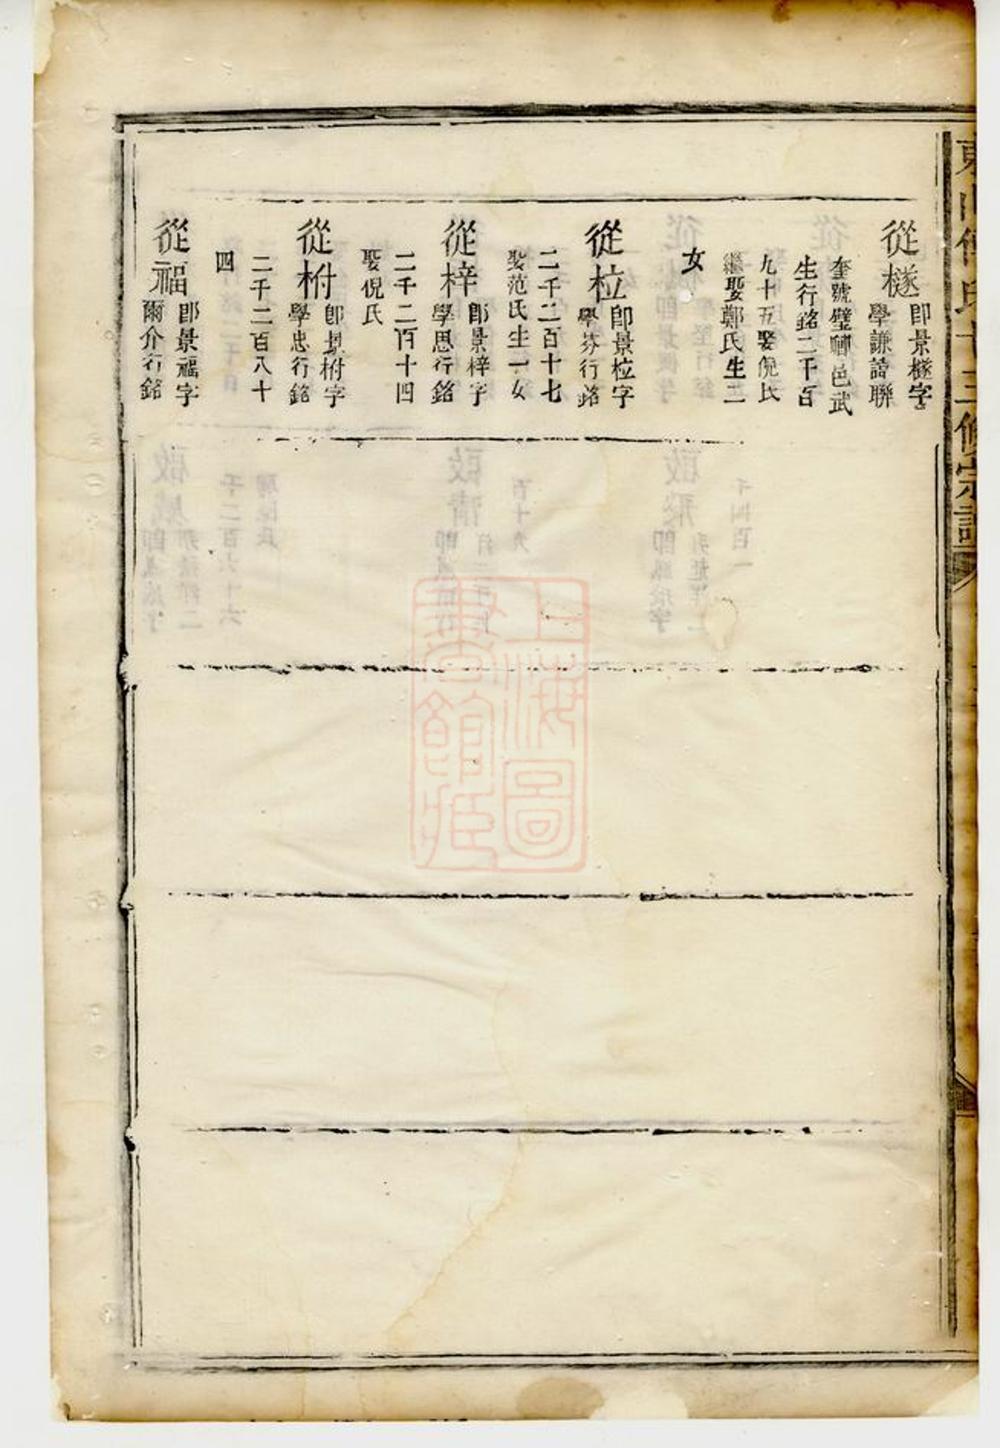 從檖
即景檖字
學謙諳聯
奎號璧卿邑武
生行銘二千百
九十五娶倪氏
繼娶鄭氏生三
女
從柆
即景柆字
學芬行銘
二千二百十七
娶范氏生一女
從梓
即景梓字
學思行銘
二千二百十四
娶倪氏
從柎
即景柎字
學忠行銘
二千二百八十
四
從福
即景福字
爾介行銘
上海圖
書館藏